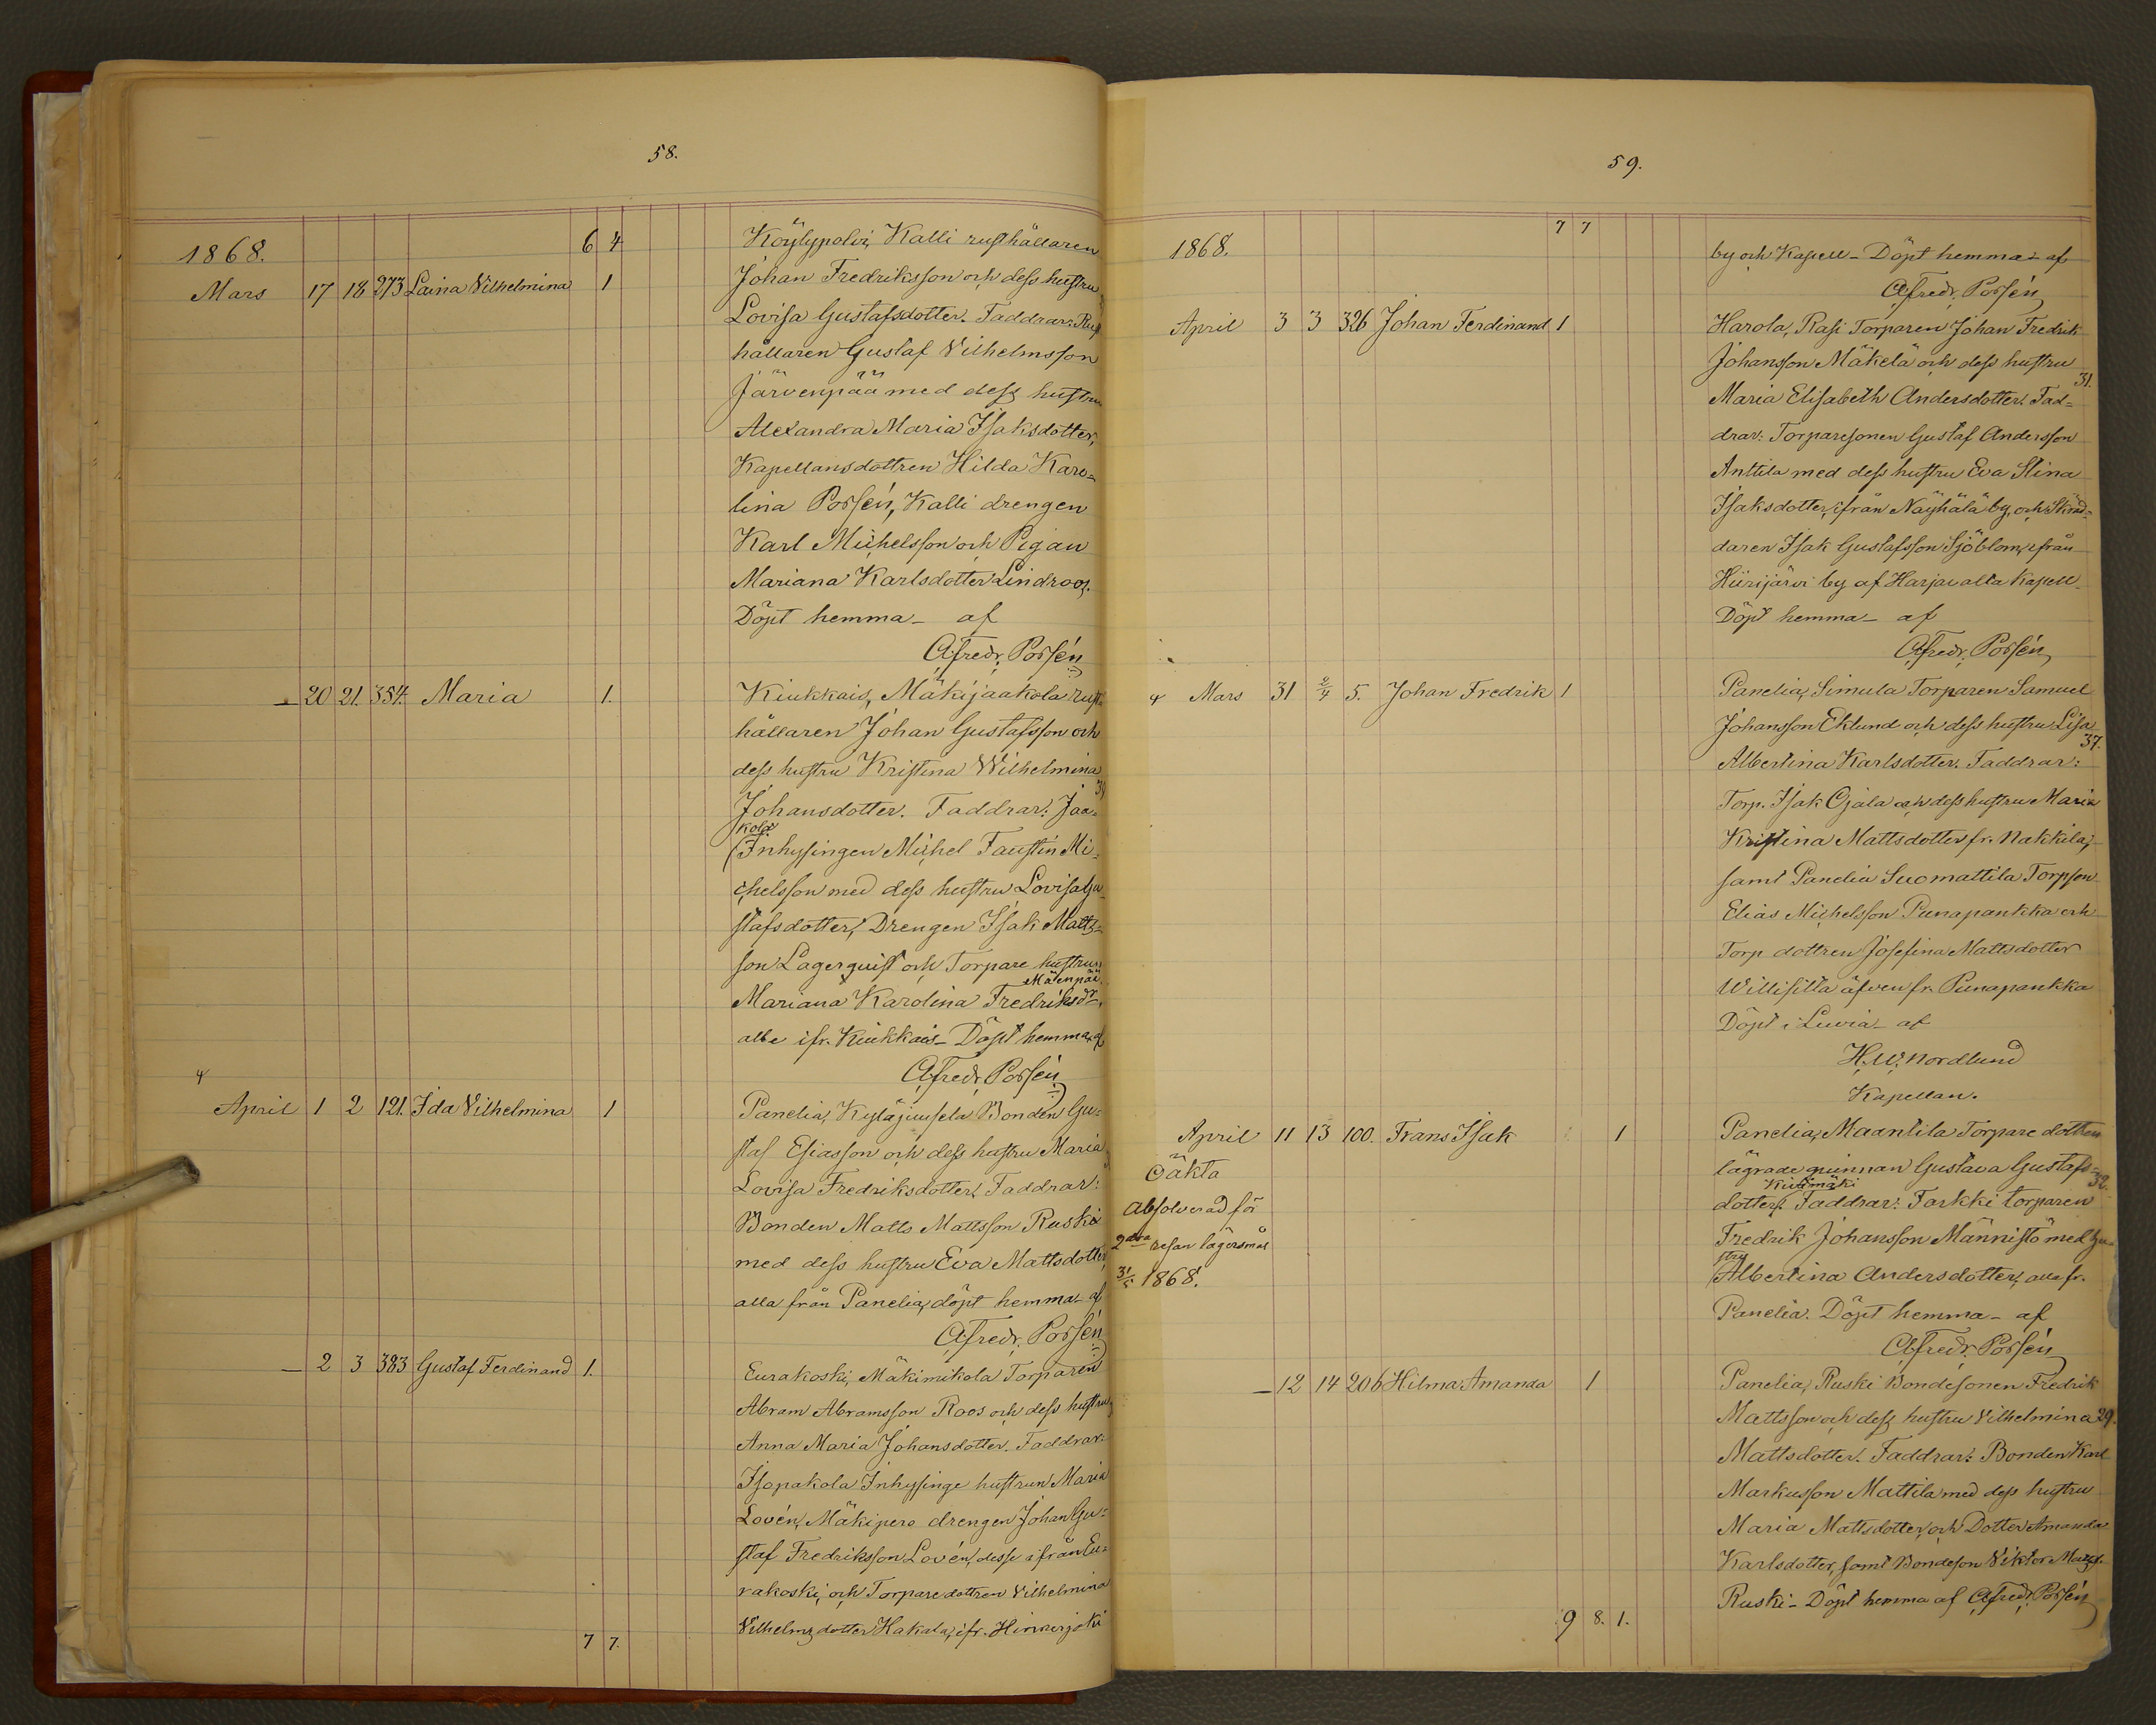 58.
1868.
6 4
Köylypolvi, Kalli rusthållaren
Mars 17 18 273 Laina Vilhelmina 1
Johan Fredriksson och dess hustru
Lovisa Gustafsdotter. Faddrar: Rust
hållaren Gustaf Vilhelmsson
Järvenpää med dess hustru
Alexandra Maria Isaksdotter,
Kapellansdottren Hilda Karo=
lina Porsén, Kalli drengen
Karl Michelsson och Pigan
Mariana Karlsdotter Lindroos.
Döpt hemma – af
A. Fredr. Porsén
— 20 21. 354. Maria 1.
Kiukkais, Mäkijaakola rust=
hållaren Johan Gustafsson och
dess hustru Kristina Wilhelmina
Johansdotter. Faddrar: Jaa=
kola
Inhysingen Michel Faustin Mi=
chelsson med dess hustru Lovisa Gu=
stafsdotter, Drengen Isak Matts=
son Lagerquist och Torpare hustrun
Mätenpää
Mariana Karolina Fredriksdr,
alle ifr. Kiukkais – Döpt hemma, af
A. Fredr. Porsén
April 1 2 121. Ida Vilhelmina 1
Panelia, Kyläjuusela Bonden Gu=
staf Esiasson och dess hustru Maria
Lovisa Fredriksdotter. Faddrar:
Bonden Matts Mattsson Ruski
med dess hustru Eva Mattsdotter,
alla från Panelia, döpt hemma – af
A. Fredr. Porsén
— 2 3 383 Gustaf Ferdinand 1.
Eurakoski, Mäkimikola Torparen
Abram Abramsson Roos och dess hustru
Anna Maria Johansdotter. Faddrar:
Isopakola Inhysinge hustrun Maria
Lovén, Mäkipere drengen Johan Gu=
staf Fredriksson Lovén, desse ifrån Eu=
rakoski, och Torparedottren Vilhelmina
Vilhelmsdotter Hakala, ifr. Hinnerjoki
7 7.
59.
7 7
1868.
by och Kapell – Döpt hemma – af
A. Fredr. Porsén
April 3 3 326 Johan Ferdinand 1
Harola, Rasi Torparen Johan Fredrik
Johansson Mäkelä och dess hustru
31.
Maria Elisabeth Andersdotter. Fad=
drar: Torparesonen Gustaf Andersson
Anttila med dess hustru Eva Stina
Isaksdotter, ifrån Näyhälä by, och Skräd=
daren Isak Gustafsson Sjöblom, ifrån
Hiirijärvi by af Harjavalta Kapell
Döpt hemma – af
A. Fredr. Porsén
Mars 31 2/4 5. Johan Fredrik 1
Panelia, Simula Torparen Samuel
Johansson Eklund och dess hustru Lisa
37.
Albertina Karlsdotter. Faddrar:
Torp. Isak Ojala och dess hustru Maria
Kristina Mattsdotter fr. Nakkila,
samt Panelia Suomattila Torpson
Elias Michelsson Punapankka och
Torp. dottren Josefina Mattsdotter
Willisilla äfven fr. Punapankka
Döpt i Luvia – af
H. W. Nordlund
Kapellan.
April 11 13 100. Frans Isak 1
Panelia, Maantila Torpare dottren
Oäkta
lägrade qvinnan Gustava Gustafs=
32.
Absolverad för
dotter Kivimäki. Faddrar: Tarkki torparen
2dra resan lägersmål
Fredrik Johansson Männistö med hu=
stru
31/5 1868.
Albertina Andersdotter, alla fr.
Panelia. Döpt hemma – af
A. Fredr. Porsén
— 12 14 206 Hilma Amanda 1
Panelia, Ruski Bondesonen Fredrik
Mattsson och dess hustru Vilhelmina 29.
Mattsdotter. Faddrar: Bonden Karl
Markusson Mattila med dess hustru
Maria Mattsdotter, och Dotter Amanda
Karlsdotter, samt Bondeson Viktor Mattss.
Ruski – Döpt hemma af A. Fredr. Porsén
9 8. 1.